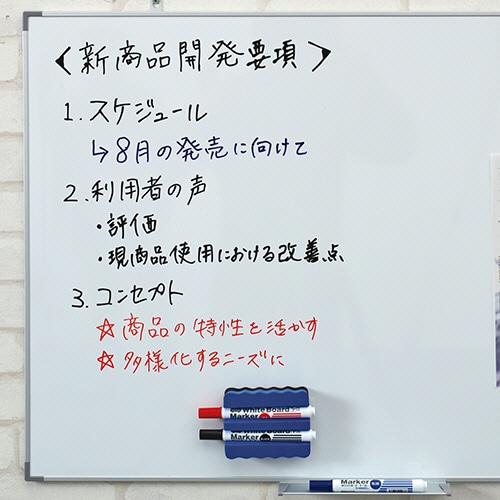 〈新商品開発要項〉
1.スケジュール
↳8月の発売に向けて
2.利用者の声
・評価
・現商品使用における改善点
3.コンセプト
☆商品の特性を活かす
☆多様化するニーズに
White Board
Marker
White Board
Marker
Marker